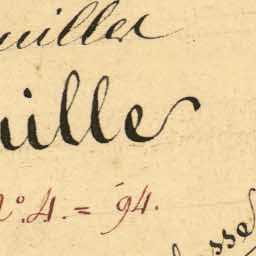 uiller
uille
No. 4. = 94.
sse